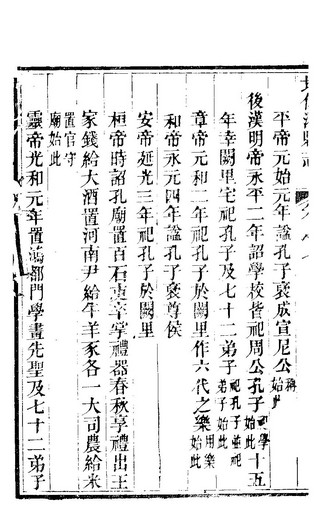 平帝元始元年諡孔子褒成宣尼公稱始此
後漢明帝永平二年詔學校皆祀周公孔子祀學始此十五
年幸闕里宅祀孔子及七十二弟子祀孔子並祀弟子始此
章帝元和二年祀孔子於闕里作六代之樂用樂始此
和帝永元四年諡孔子褒尊侯
安帝延光三年祀孔子於闕里
桓帝時詔孔廟置百石卒掌禮器春秋享禮出王
家錢給大酒置河南尹給牛羊豕各一大司農給米
置官守廟始此
靈帝光和元年置鴻都門學畫先聖及七十二弟子